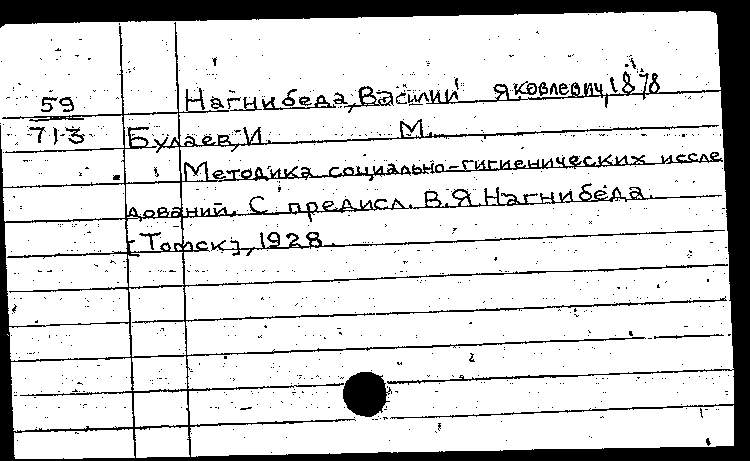 59 Нагнибеда, Василий Яковлевич, 1878
713 Булаев, И. М.
Методика социально-гигиенических иссле
дований. С предисл. В.Я. Нагнибеда.
[Томск], 1928.